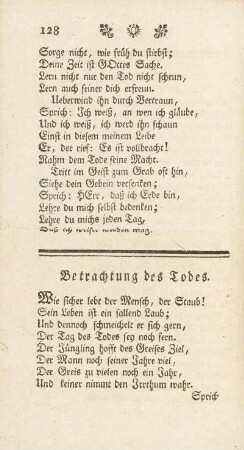 128
Sorge nicht, wie früh du stirbst;
Deine Zeit ist GOttes Sache.
Lern nicht nur den Tod nicht scheun,
Lern auch seiner dich erfreun.
Ueberwind ihn durch Vertraun,
Sprich: Ich weiß, an wen ich gläube,
Und ich weiß, ich werd ihn schaun
Einst in diesem meinem Leibe
Er, der rief: Es ist vollbracht!
Nahm dem Tode seine Macht.
Tritt im Geist zum Grab oft hin,
Siehe dein Gebein versenken;
Sprich: HErr, daß ich Erde bin,
Lehre du mich selbst bedenken;
Lehre du michs jeden Tag,
Daß ich weiser werden mag.
Betrachtung des Todes.
Wie sicher lebt der Mensch, der Staub!
Sein Leben ist ein fallend Laub;
Und dennoch schmeichelt er sich gern,
Der Tag des Todes sey noch fern.
Der Jüngling hofft des Greises Ziel,
Der Mann noch seiner Jahre viel,
Der Greis zu vielen noch ein Jahr,
Und keiner nimmt den Irrthum wahr.
Sprich